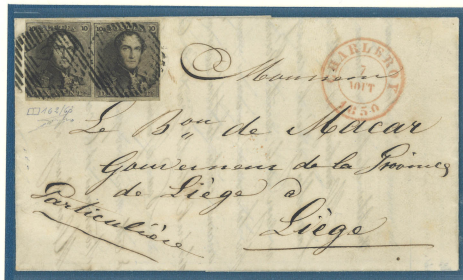 10 10
CHARLEROY
7
AOUT
1850
Monsieur
Le Bon de Macar
Gouverneur de la Province
de Liège à
Liège
Particulière